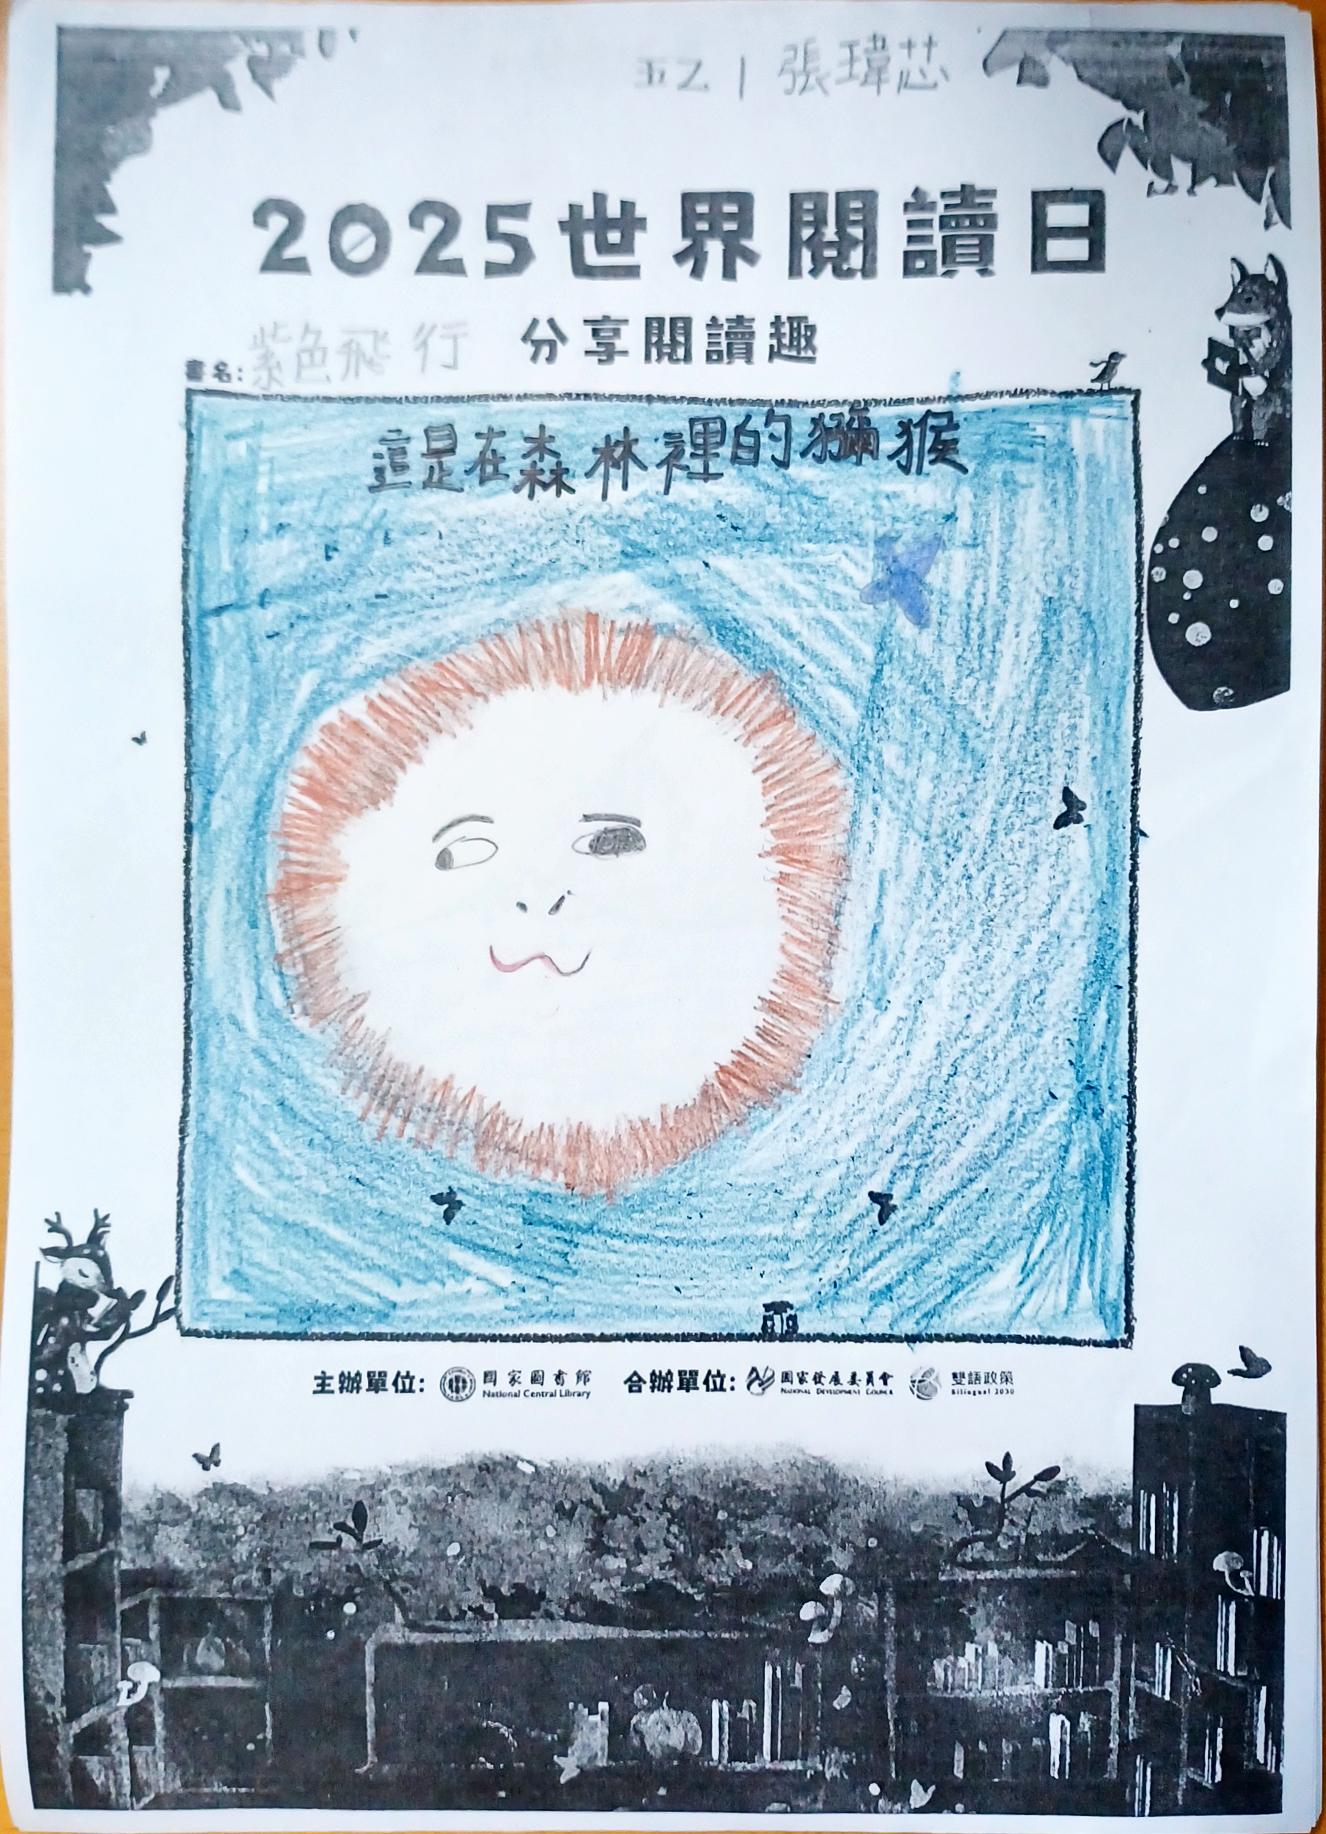 五乙 1 張瑋芯
2025世界閱讀日
分享閱讀趣
書名: 紫色飛行
這是在森林裡的獼猴
主辦單位: 國家圖書館 National Central Library 合辦單位: 國家發展委員會 National Development Council 雙語政策 Bilingual 2030